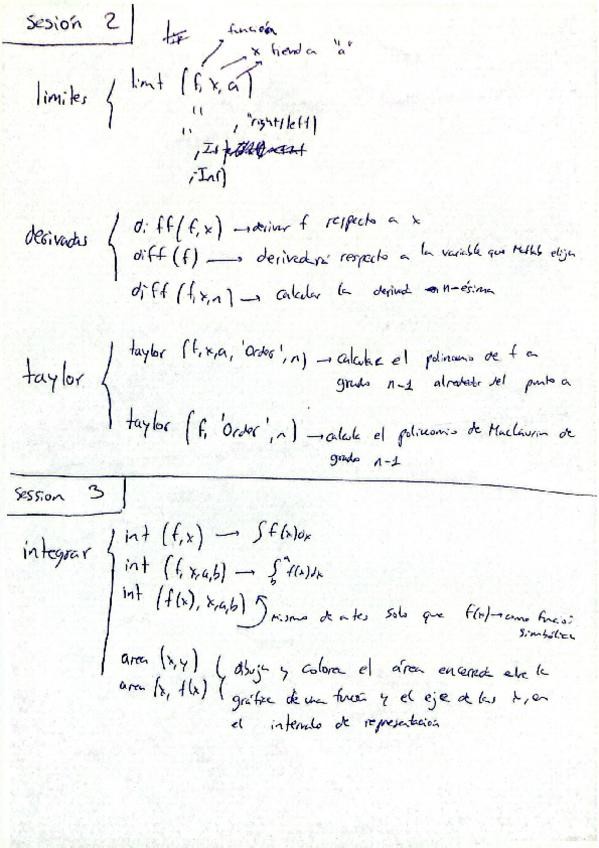 Sesión 2
función
x tienda "a"
límites { limit (f, x, a)
" , "right/left)
" , Inf
, -Inf)
derivadas { diff(f,x) → derivar f respecto a x
diff(f) → derivará respecto a la variable que Matlab elija
diff(f,x,n) → calcular la derivad n-ésima
taylor { taylor (f,x,a, 'Order', n) → calcular el polinomio de f en
grado n-1 alrededor del punto a
taylor (f, 'Order', n) → calcula el polinomio de Maclaurin de
grado n-1
Session 3
integrar { int (f,x) → ∫f(x)dx
int (f, x,a,b) → ∫ᵇᵃ f(x)dx
int (f(x), x,a,b) mismo de antes solo que f(x) → como funció
simbólica
area (x,y) { dibuja y colorea el área encerrada entre la
area (x, f(x) { gráfica de una función y el eje de las x, en
el intervalo de representación